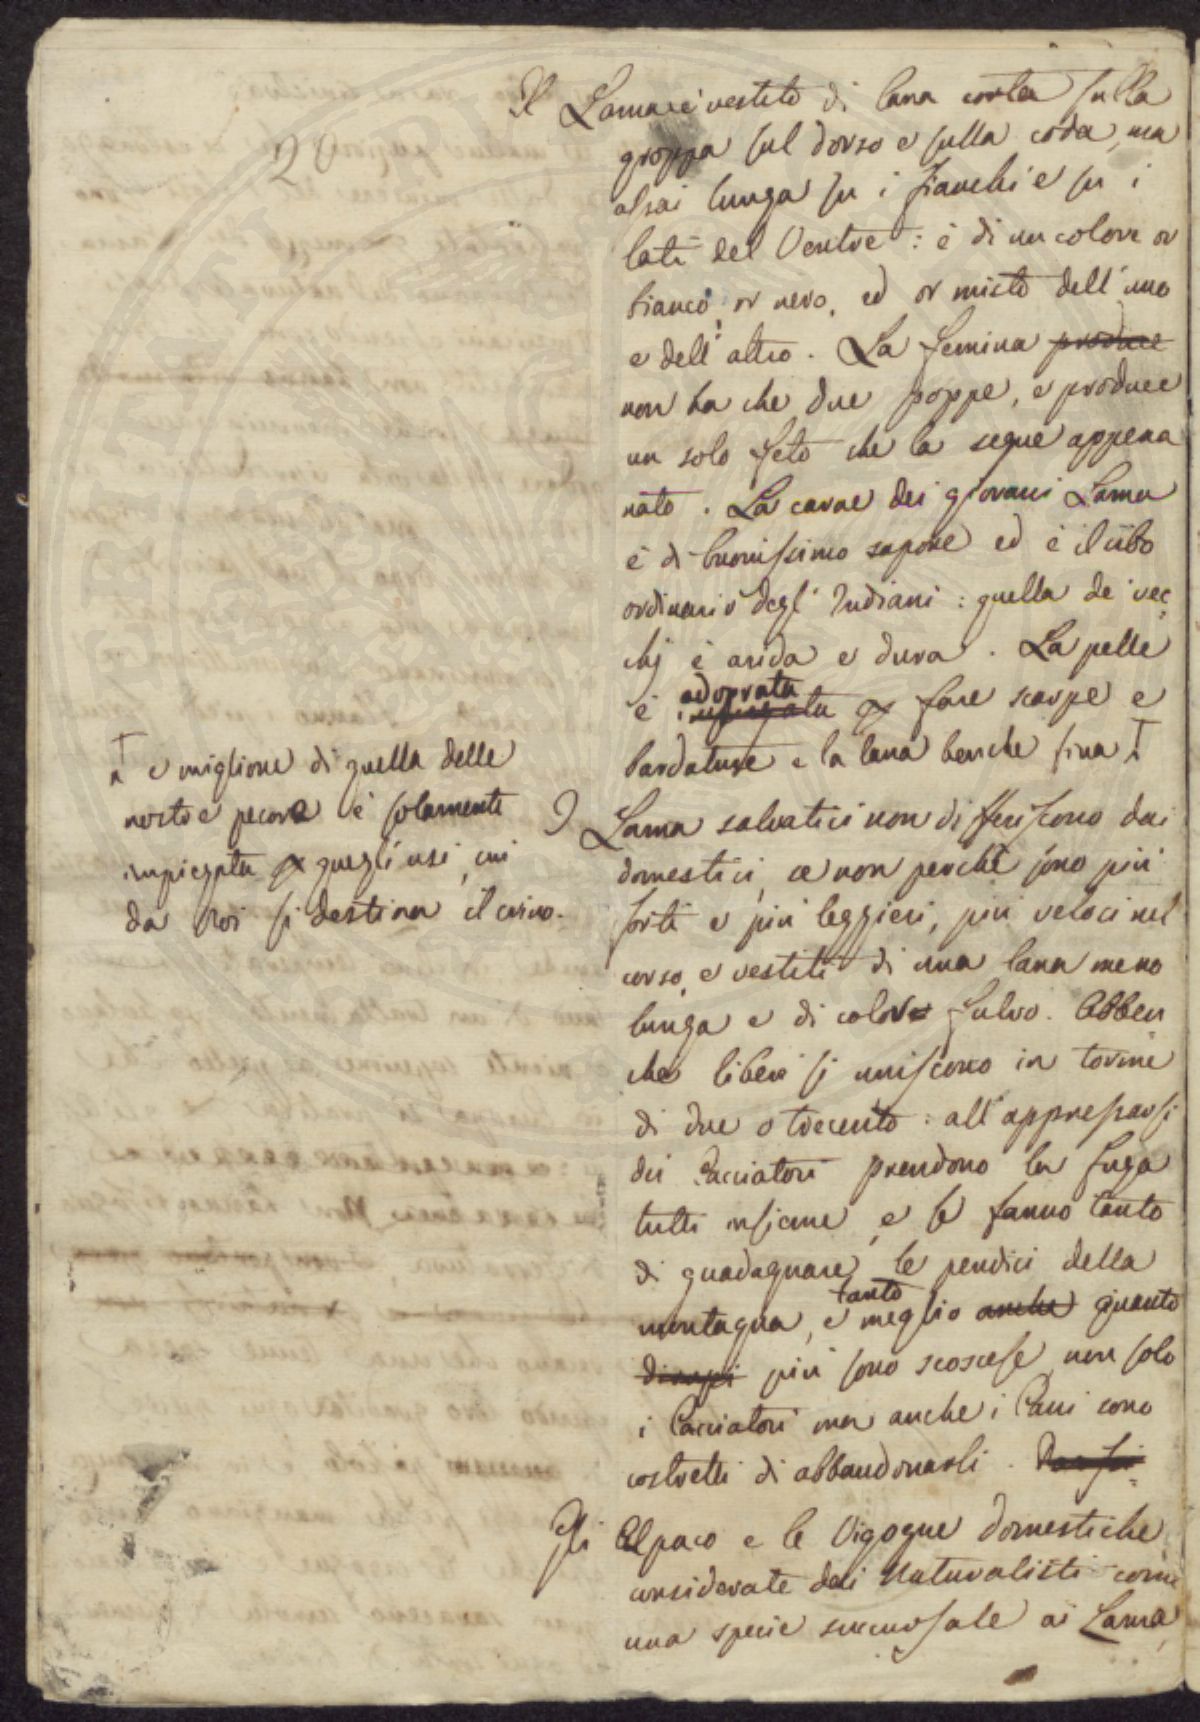 20
Il Lama è vestito di lana corta sulla
groppa sul dorso e sulla coda, ma
assai lunga su i fianchi e su i
lati del Ventre: è di un colore or
bianco, or nero, ed or misto dell'uno
e dell'altro. La femina produce
non ha che due poppe, e produce
un solo feto che la segue appena
nato. La carne dei giovani Lama
è di buonissimo sapore ed è il cibo
ordinario degl'Indiani: quella de' vec
chj è arida e dura. La pelle
adoprata
è impiegata p fare scarpe e
bardature e la lana benche fina †
† e migliore di quella delle
nostre pecore è solamente
impiegata p quegli usi, cui
da Noi si destina il crino.
I Lama salvatici non differiscono dai
domestici, se non perchè sono più
forti e più leggieri, più veloci nel
corso, e vestiti di una lana meno
lunga e di colore fulvo. Abben
chè liberi si uniscono in torme
di due o trecento: all'appressarsi
dei Cacciatori prendono la fuga
tutti insieme, e se fanno tanto
di guadagnare le pendici della
tanto
montagna, e meglio anche quanto
dirupi più sono scoscese, non solo
i Cacciatori ma anche i Cani sono
costretti di abbandonarli.
Gli Alpaco e le Vigogne domestiche
considerate dai Naturalisti come
una specie succursale ai Lama,